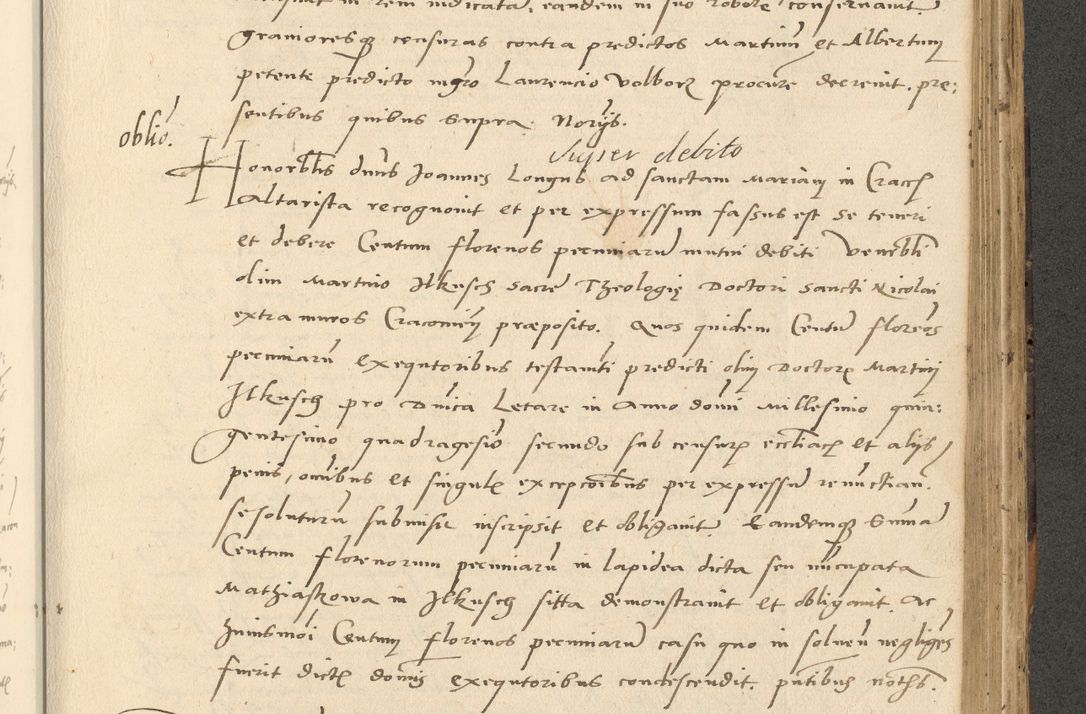 in rem iudicata, eandem in suo robore conservavit.
gravioresq censuras contra predictos Martinū et Albertum
petente predicto mgro Laurencio Volborz procure decrevit. pre:
sentibus quibus supra. Norijs.
oblio.
Super debito
Honorblis dnus Joannes Longus ad sanctam Mariam in Crac
Altarista recognovit et per expressum fassus est se teneri
et debere Centum florenos pecuniarū mutui debiti Venerbli
olim Martino Ilkusch Sacre Theologię Doctori Sancti Nicolai
extra muros Cracovien præposito. Quos quidem Centū florēos
pecuniarū Exequtoribus testamti predicti olim Doctoris Martini
Ilkusch pro Dnica Letare in Anno domi Millesimo quin:
gentesimo quadragesio secundo sub censuris eccliacis et alijs
penis, omibus et singulis excepcoibus per expressū renuctian.
se soluturū submisit inscripsit et obligavit. Eandemq Summā
Centum florenorum pecuniarū in lapidea dicta seu nucupata
Mathiaskowa in Ilkusch sitta demonstravit et obligavit. Ac
huiusmoi Centum florenos pecuniarū casu quo in solven negliges
fuerit dictis domis Exequtoribus condescendit. pntibus noths.